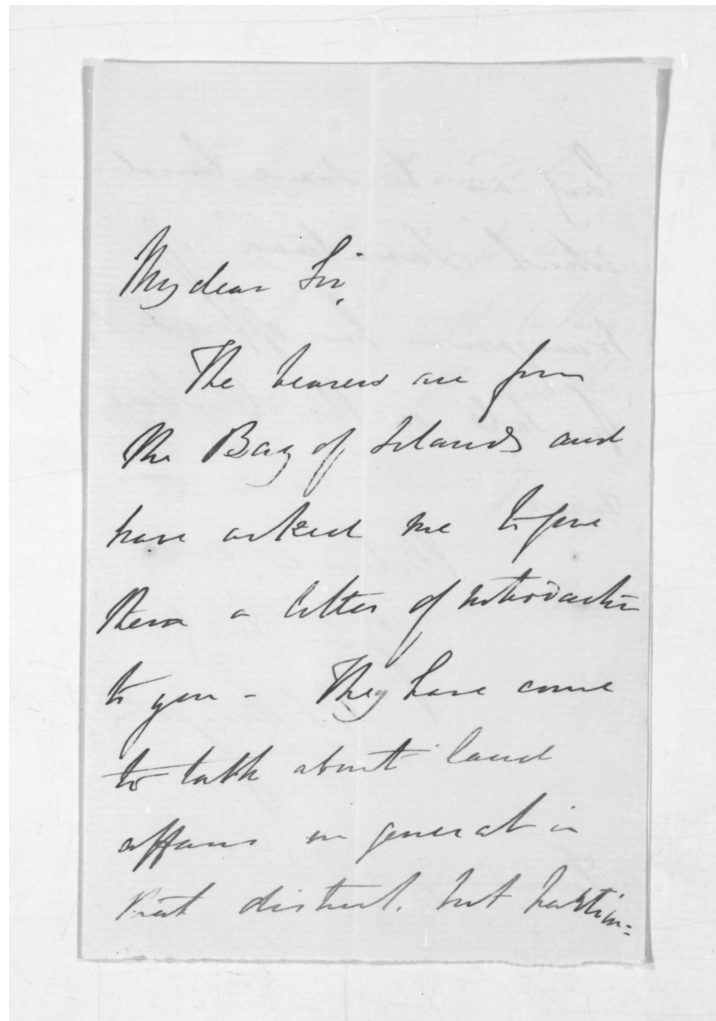 My dear Sir,
The bearers are from
the Bay of Islands and
have asked me to give
them a letter of introduction
to you - They have come
to talk about land
affairs in general in
that district, but partic=